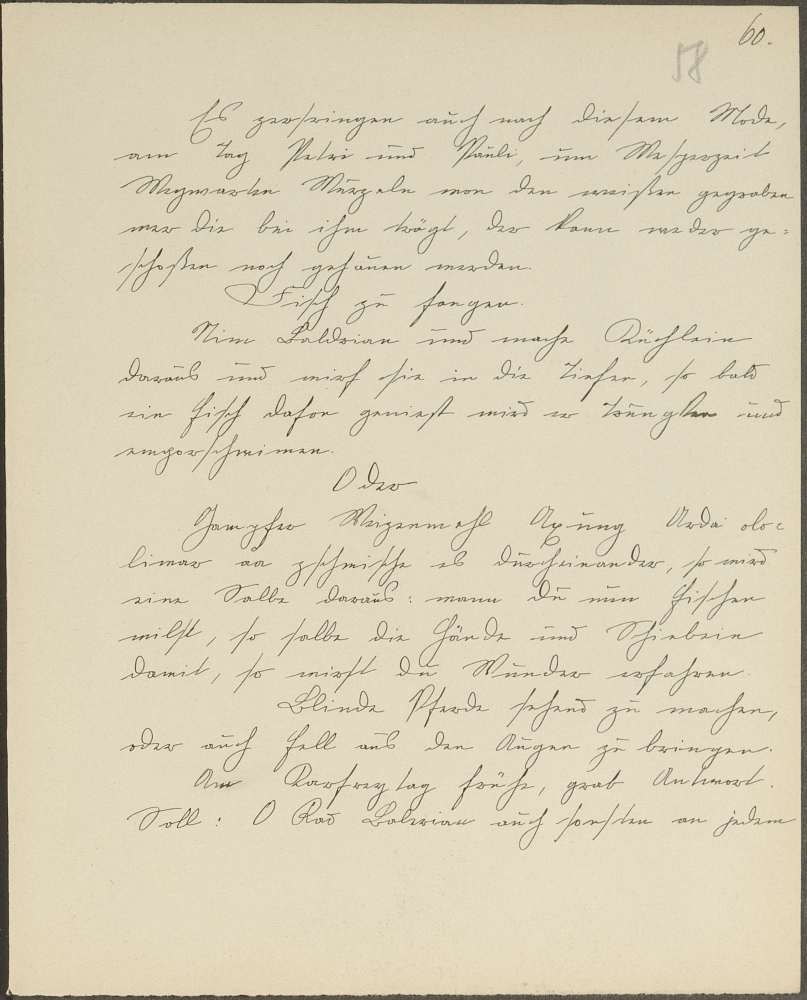 60.
58
Es zerspringen auch nach diesem Mode,
am Tag Petri und Pauli, um Vesperzeit
Wegwarten Würzeln von den weißen gegraben
wer die bei ihm trägt, der kann weder ge=
schoßen noch gehauen werden.
Fisch zu fangen.
Nim Baldrian und mache Küchlein
daraus und wirf sie in die Tiefen, so bald
ein Fisch dafon geniest wird er und
emporschwimen.
Oder
Gampfer Weizenmehl Axung Arda oloc
limar aa zschmische es durcheinander, so wird
eine Salbe daraus: wann du nun fischen
wilst, so salbe die Hände und Schiebein
damit, so wirst du Wunder erfahren.
Blinde Pferde sehend zu machen,
oder auch Fell aus den Augen zu bringen.
Am Karfreytag frühe, grab Antwort.
Soll: O Rad auch sonsten an jedem